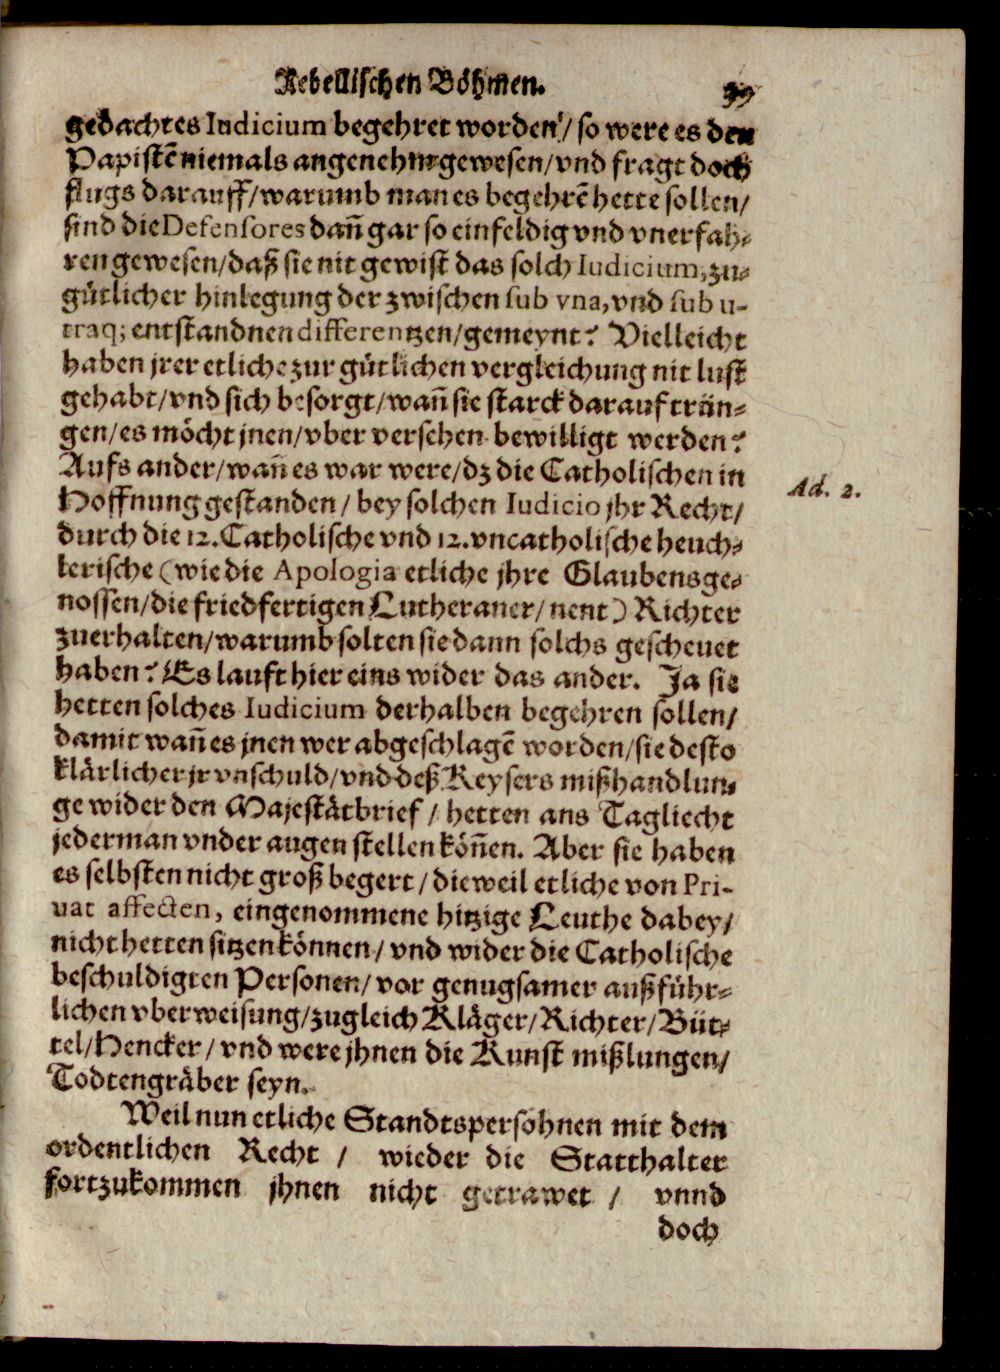 Rebellischen Böhmen. 39
gedachtes Iudicium begehret worden / so were es den
Papistẽ niemals angenehm gewesen / vnd fragt doch
flugs darauff / warumb man es begehrẽ hette sollen /
sind die Defensores dañ gar so einfeldig vnd vnerfah⸗
ren gewesen / daß sie nit gewist das solch Iudicium, zu⸗
gütlicher hinlegung der zwischen sub vna, vnd sub u-
traq; entstandnen differentzen / gemeynt? Vielleicht
haben jrer etliche zur gütlichen vergleichung nit lust
gehabt / vnd sich besorgt / wañ sie starck darauf trün⸗
gen / es möcht jnen / vber versehen bewilligt werden?
Aufs ander / wañ es war were / dz die Catholischen in
Hoffnung gestanden / bey solchen Iudicio jhr Recht /
durch die 12. Catholische vnd 12. vncatholische heuch⸗
lerische (wie die Apologia etliche jhre Glaubensge⸗
nossen / die friedfertigen Lutheraner / nent) Richter
zuerhalten / warumb solten sie dann solchs gescheuet
haben? Es lauft hier eins wider das ander. Ja sie
hetten solches Iudicium derhalben begehren sollen /
damit wañ es jnen wer abgeschlagẽ worden / sie desto
klärlicher jr vnschuld / vnd deß Keysers mißhandlun⸗
ge wider den Majestätbrief / hetten ans Tagliecht
jederman vnder augen stellen köñen. Aber sie haben
es selbsten nicht groß begert / dieweil etliche von Pri-
uat affecten, eingenommene hitzige Leuthe dabey /
nicht hetten sitzen können / vnd wider die Catholische
beschuldigten Personen / vor genugsamer außführ⸗
lichen vberweisung / zugleich Kläger / Richter / Büt⸗
tel / Hencker / vnd were jhnen die Kunst mißlungen /
Todtengräber seyn.
Weil nun etliche Standtspersohnen mit dem
ordentlichen Recht / wieder die Statthalter
fortzukommen jhnen nicht getrawet / vnnd
doch
Ad. 2.